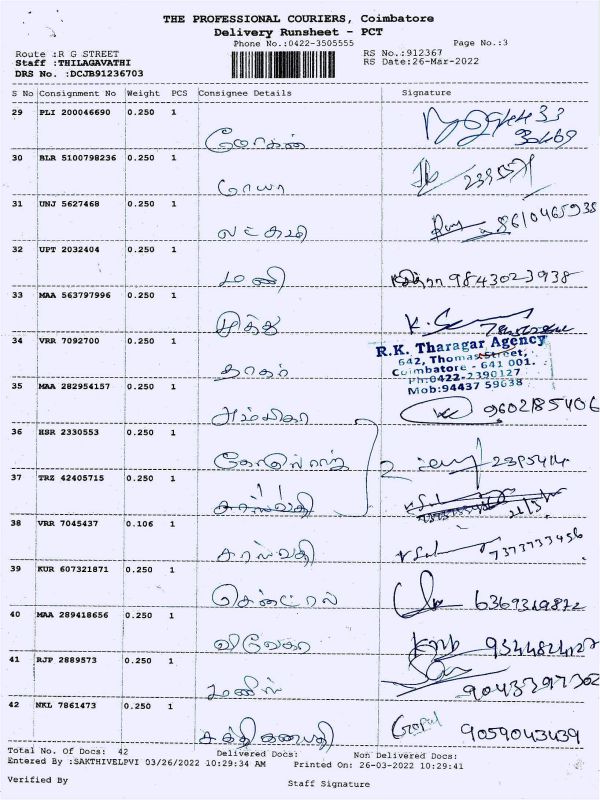 THE PROFESSIONAL COURIERS, Coimbatore
Delivery Runsheet - PCT
Phone No.:0422-3505555
Page No.:3
Route :R G STREET
RS No.:912367
Staff :THILAGAVATHI
RS Date:26-Mar-2022
DRS No. :DCJB91236703
S No Consignment No Weight PCS Consignee Details Signature
29 PLI 200046690 0.250 1
மோகன்
30 BLR 5100798236 0.250 1
31 UNJ 5627468 0.250 1
8610465938
32 UPT 2032404 0.250 1
மணி 9843023938
33 MAA 563797996 0.250 1
முத்து
34 VRR 7092700 0.250 1
R.K. Tharagar Agency
642, Thomas Street,
Coimbatore - 641 001.
Ph:0422-2390127
Mob:94437 59638
35 MAA 282954157 0.250 1
அம்பிகா 9602185406
36 HSR 2330553 0.250 1
2395414
37 TRZ 42405715 0.250 1
சரஸ்வதி
38 VRR 7045437 0.106 1
சரஸ்வதி 7373733456
39 KUR 607321871 0.250 1
சென்ட்ரல்
40 MAA 289418656 0.250 1
விவேகா
41 RJP 2889573 0.250 1
மணிஸ்
42 NKL 7861473 0.250 1
சக்தி கணபதி Gopal 9059043439
Total No. Of Docs: 42 Delivered Docs: Non Delivered Docs:
Entered By :SAKTHIVELPVI 03/26/2022 10:29:34 AM Printed On: 26-03-2022 10:29:41
Verified By
Staff Signature